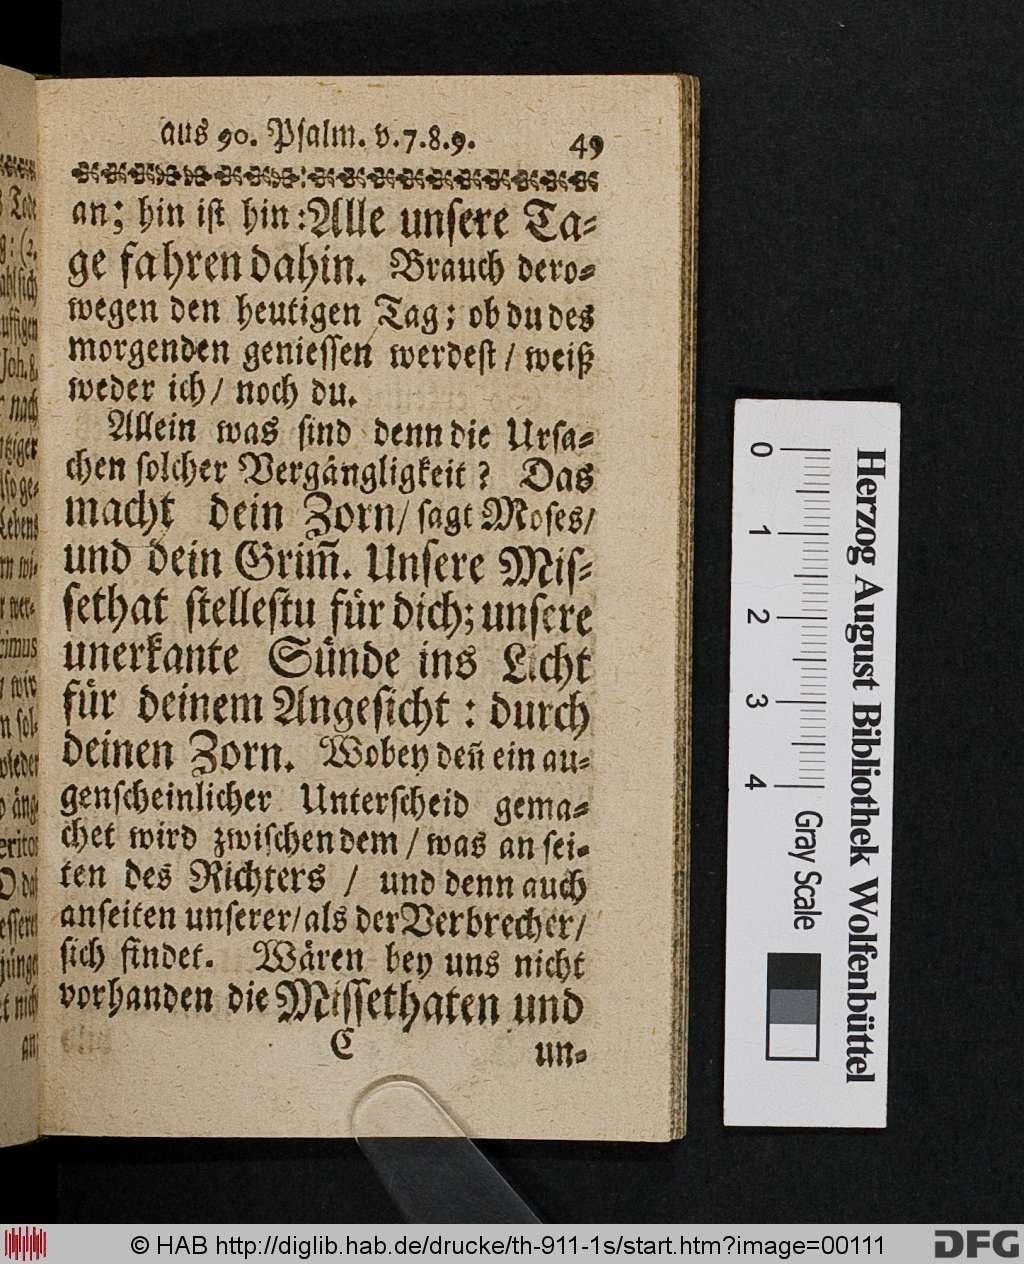 aus 90. Psalm. v.7.8.9. 49
an; hin ist hin: Alle unsere Ta-
ge fahren dahin. Brauch dero-
wegen den heutigen Tag; ob du des
morgenden geniessen werdest / weiß
weder ich / noch du.
Allein was sind denn die Ursa-
chen solcher Vergängligkeit? Das
macht dein Zorn / sagt Moses /
und dein Grim̃. Unsere Mis-
sethat stellestu für dich; unsere
unerkante Sünde ins Licht
für deinem Angesicht: durch
deinen Zorn. Wobey deñ ein au-
genscheinlicher Unterscheid gema-
chet wird zwischen dem / was an sei-
ten des Richters / und denn auch
anseiten unserer / als der Verbrecher /
sich findet. Wären bey uns nicht
vorhanden die Missethaten und
C un-
0 1 2 3 4
Gray Scale
Herzog August Bibliothek Wolfenbüttel
© HAB http://diglib.hab.de/drucke/th-911-1s/start.htm?image=00111
DFG